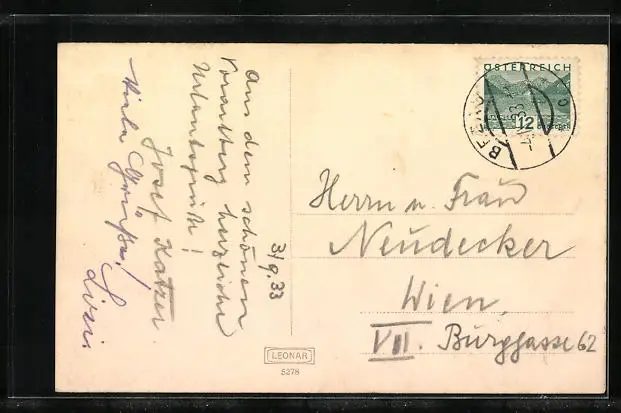 Aus dem schönen
Vorarlberg herzliche
Urlaubsgrüße!
Josef Katzer
Viele Grüße!
Luisi
31/9.33
ÖSTERREICH
12
Herrn u. Frau
Neudecker
Wien,
VII. Burggasse 62
LEONAR
5278